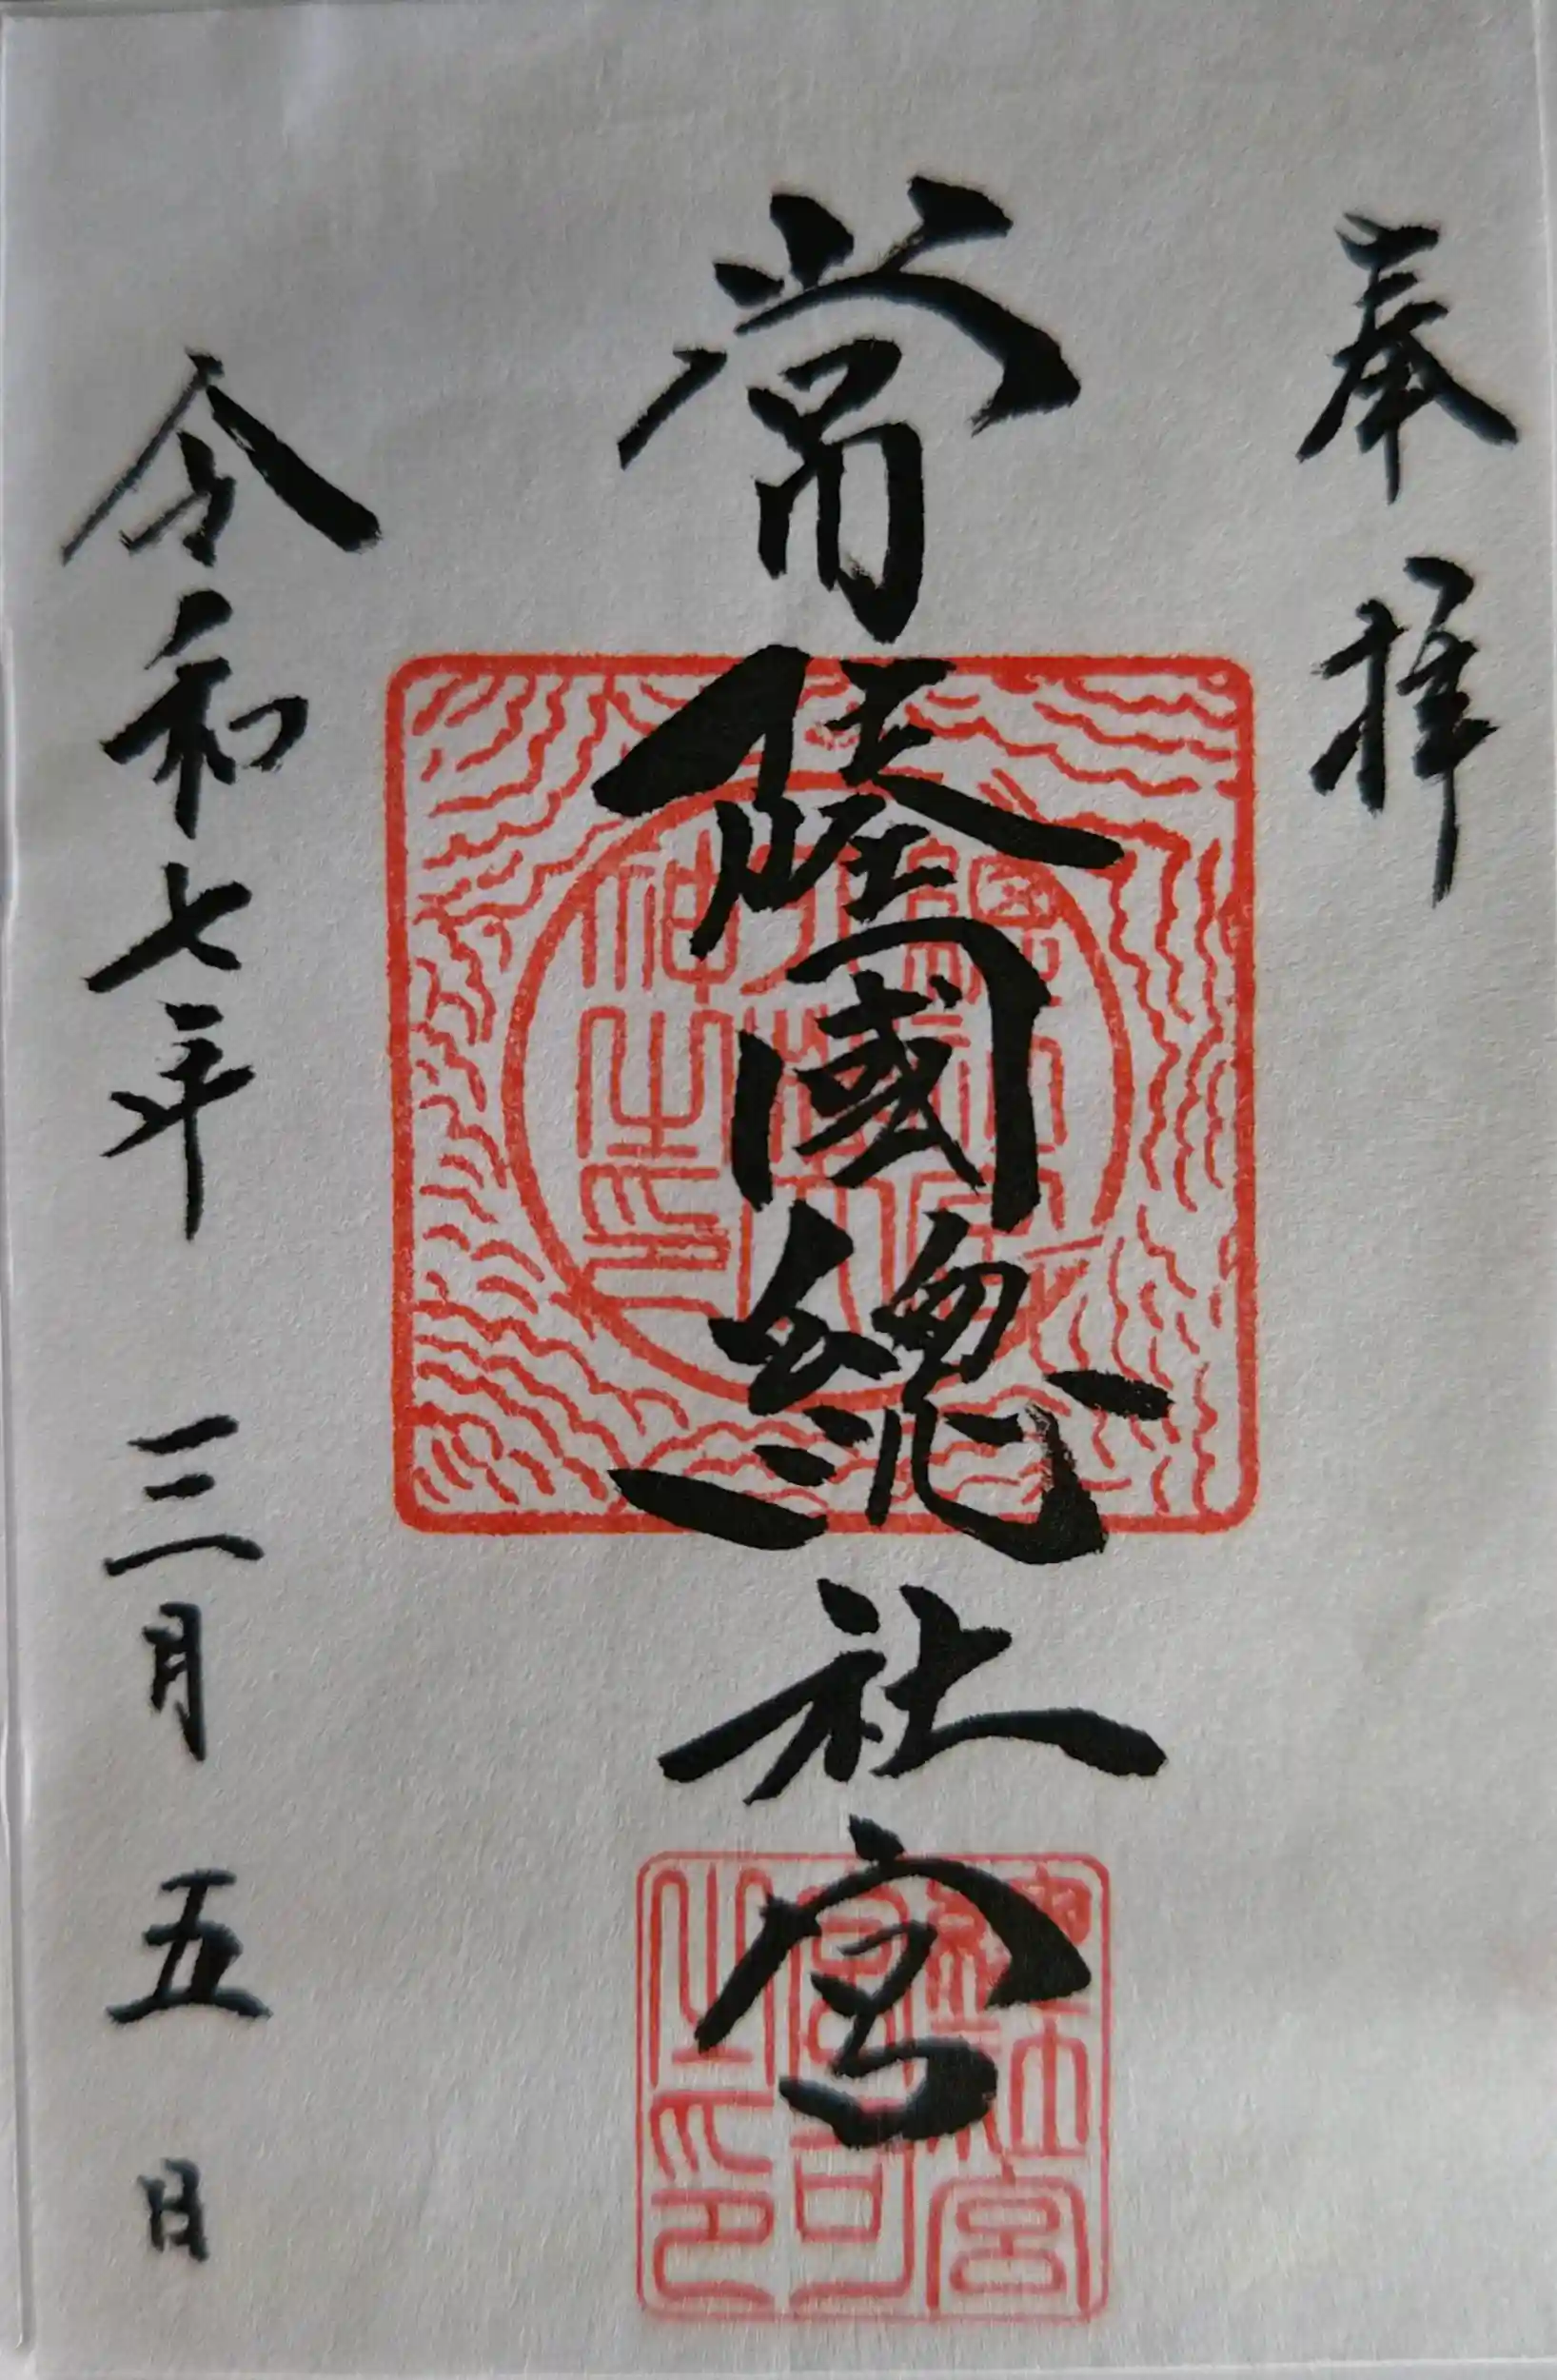 奉拝
常陸國總社宮
令和七年 三月 五日